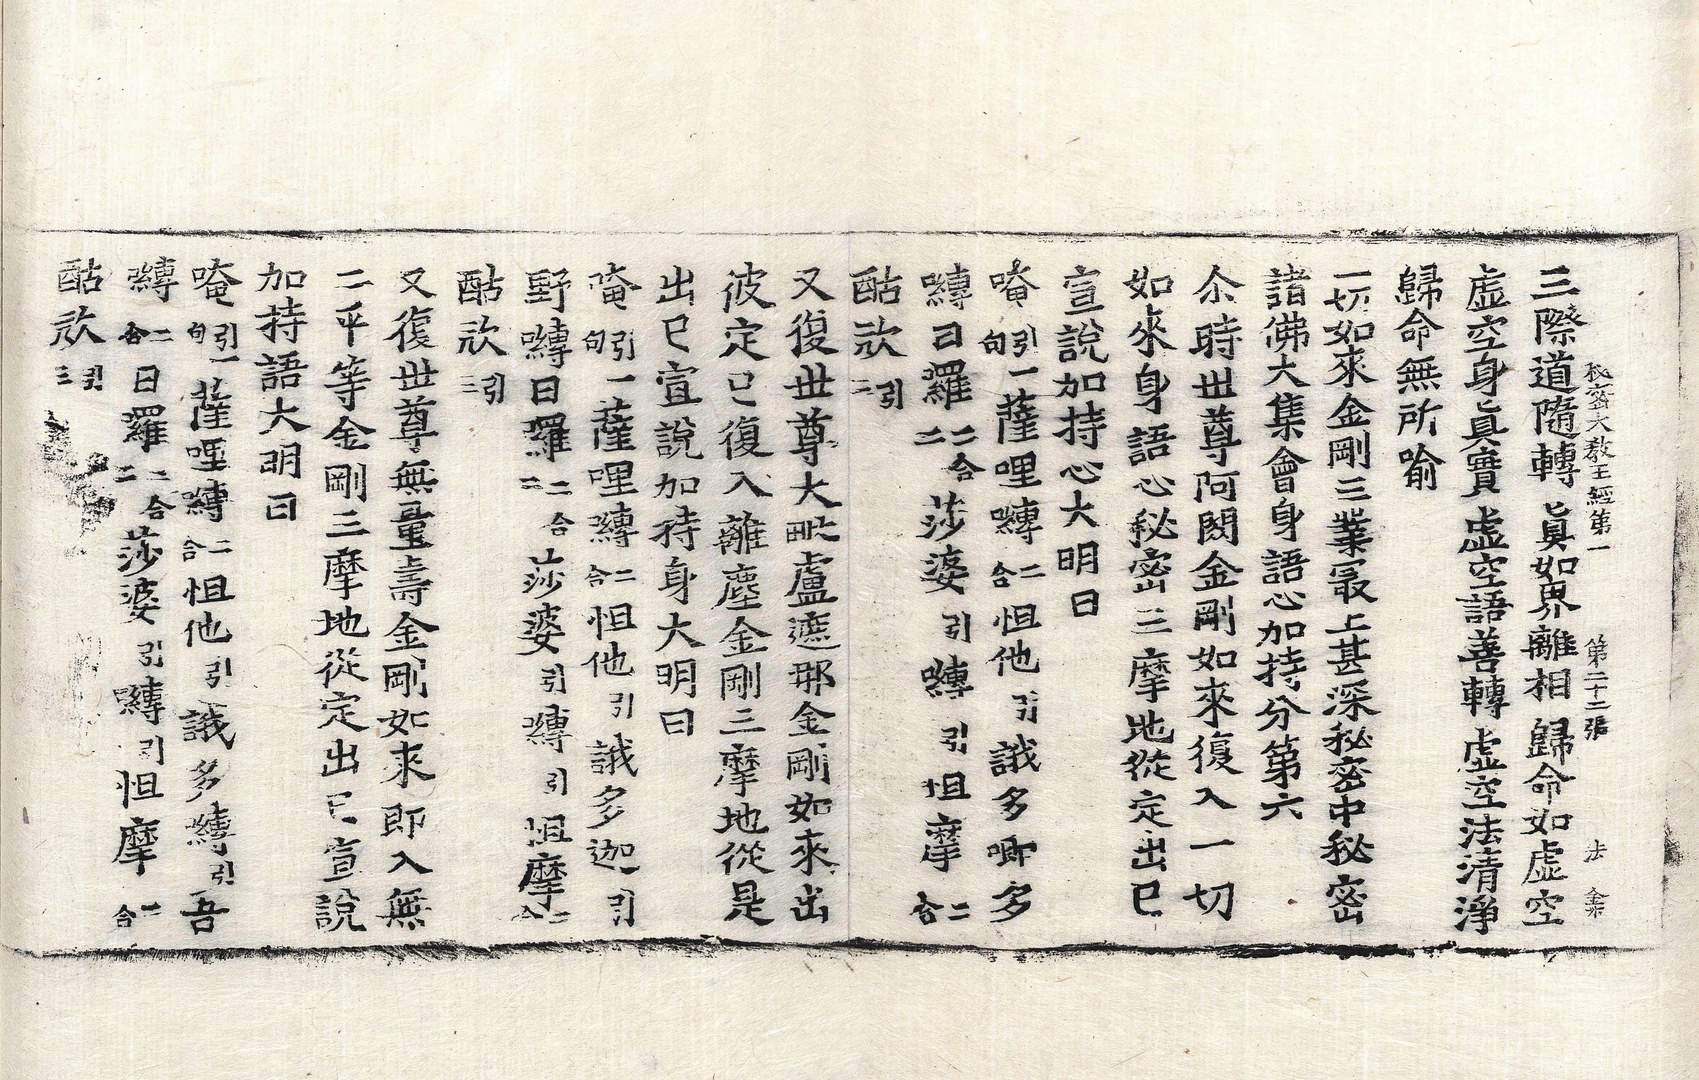 三際道隨轉　眞如界離相　歸命如虛空
秘密大教王經第一　第二十二張　法　
虛空身眞實　虛空語善轉　虛空法清淨
歸命無所喻
一切如來金剛三業最上甚深秘密中秘密
諸佛大集會身語心加持分第六
尒時世尊阿閦金剛如來復入一切
如來身語心秘密三摩地從定出已
宣說加持心大明曰
唵引一句薩哩嚩二合怛他引誐多唧多
嚩日羅二合二莎婆引嚩引怛摩二合
酤㰠引三
又復世尊大毗盧遮那金剛如來出
彼定已復入離塵金剛三摩地從是
出已宣說加持身大明曰
唵引一句薩哩嚩二合怛他引誐多迦引
野嚩日羅二合二莎婆引嚩引怛摩二合
酤㰠引三
又復世尊無量壽金剛如來即入無
二平等金剛三摩地從定出已宣說
加持語大明曰
唵引一句薩哩嚩二合怛他引誐多嚩引吾
嚩二合日羅二合二莎婆引嚩引怛摩二合
酤㰠引三